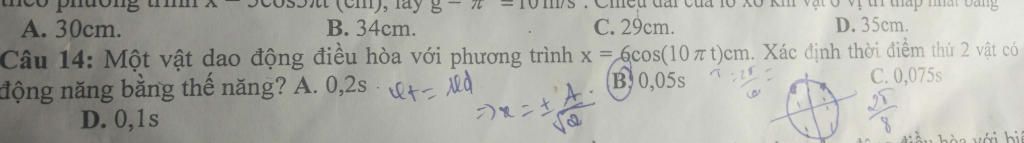 theo phương trình x = 5cos5πt (cm), lấy g = π² = 10 m/s². Chiều dài của lò xo khi vật ở vị trí thấp nhất bằng
A. 30cm. B. 34cm. C. 29cm. D. 35cm.
Câu 14: Một vật dao động điều hòa với phương trình x = 6cos(10 π t)cm. Xác định thời điểm thứ 2 vật có
động năng bằng thế năng? A. 0,2s B. 0,05s C. 0,075s
Wt = Wđ
=> x = ± A/√2
2π/8
D. 0,1s
điều hòa với